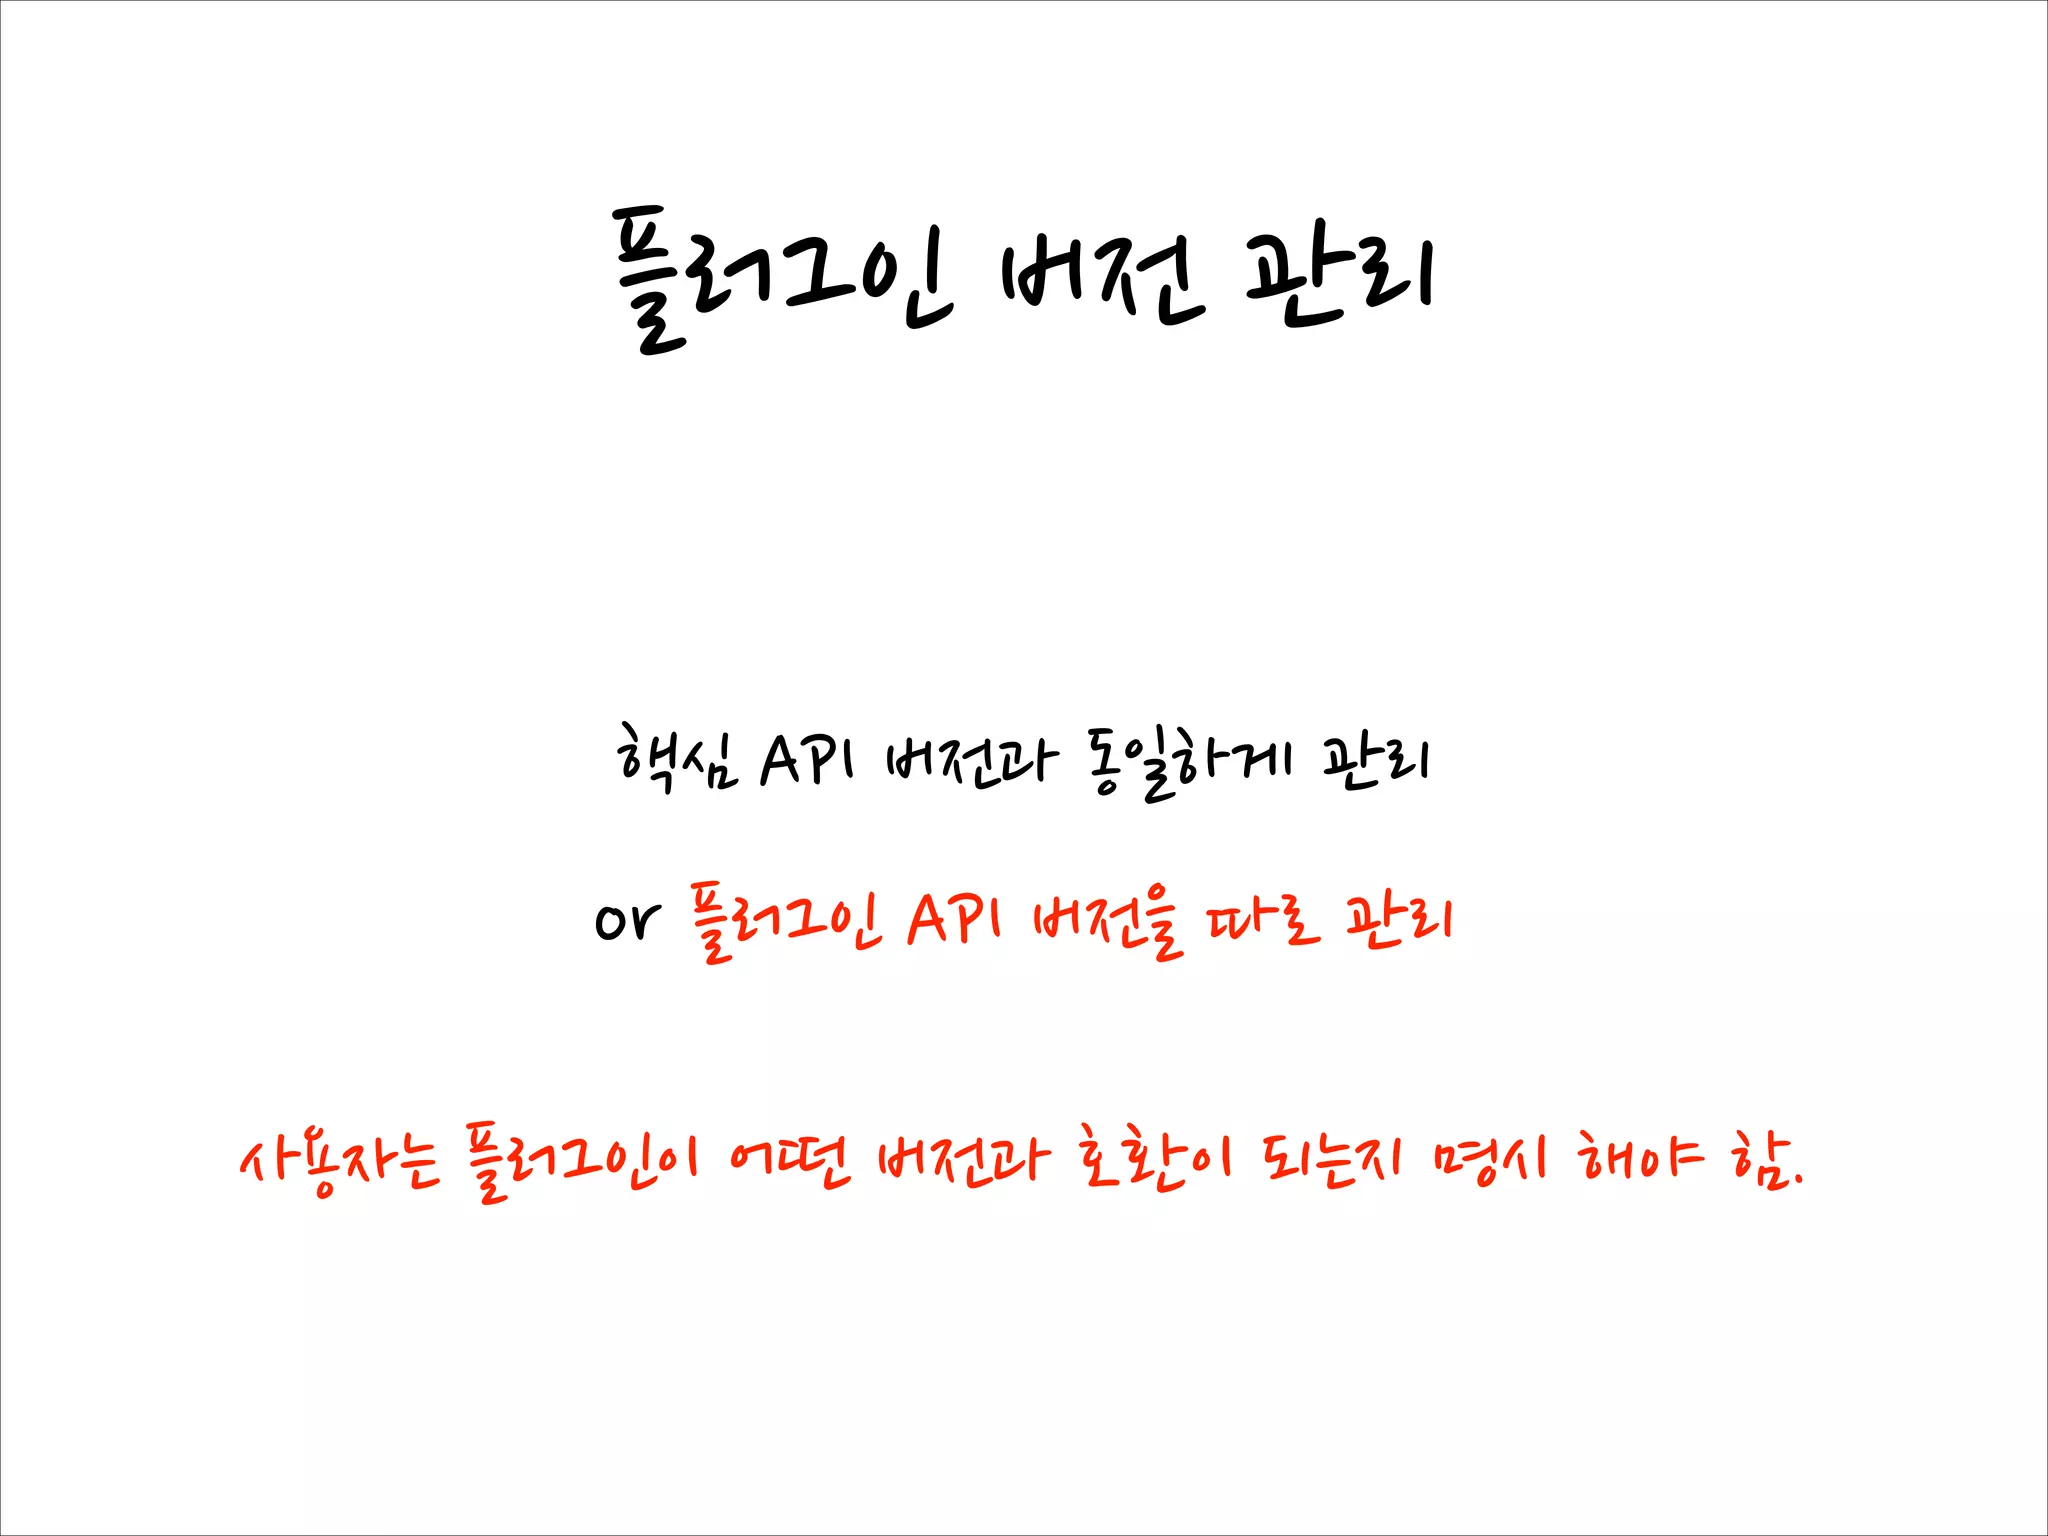 플러그인 버전 관리
핵심 API 버전과 동일하게 관리
or 플러그인 API 버전을 따로 관리
사용자는 플러그인이 어떤 버전과 호환이 되는지 명시 해야 함.